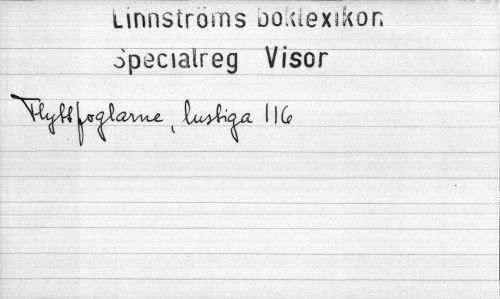 Linnströms boklexikon
Specialreg Visor
Flyttfoglarne, lustiga 116